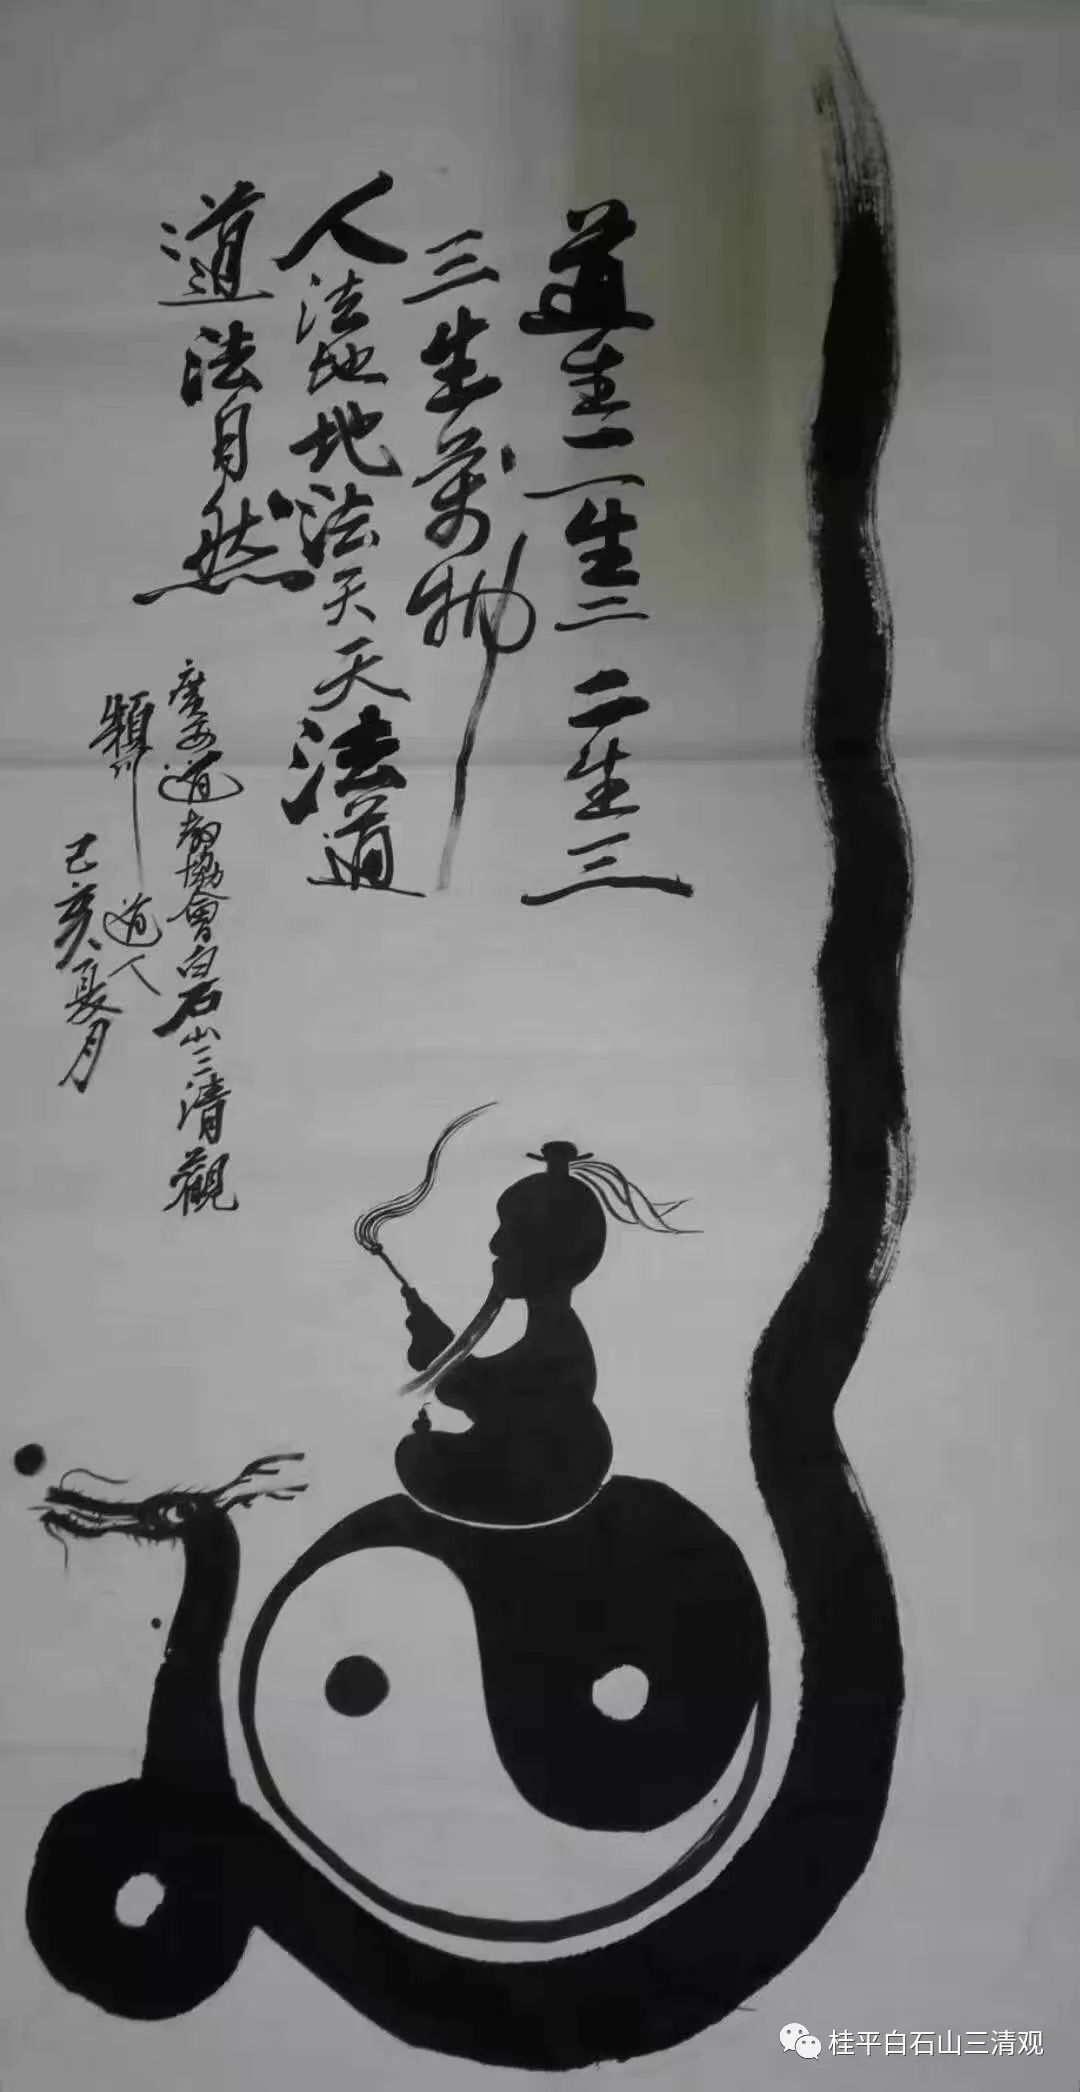 道生一一生二二生三
三生萬物
人法地地法天天法道
道法自然
廣西道教協會白石山三清觀
潁川道人
己亥夏月
桂平白石山三清观